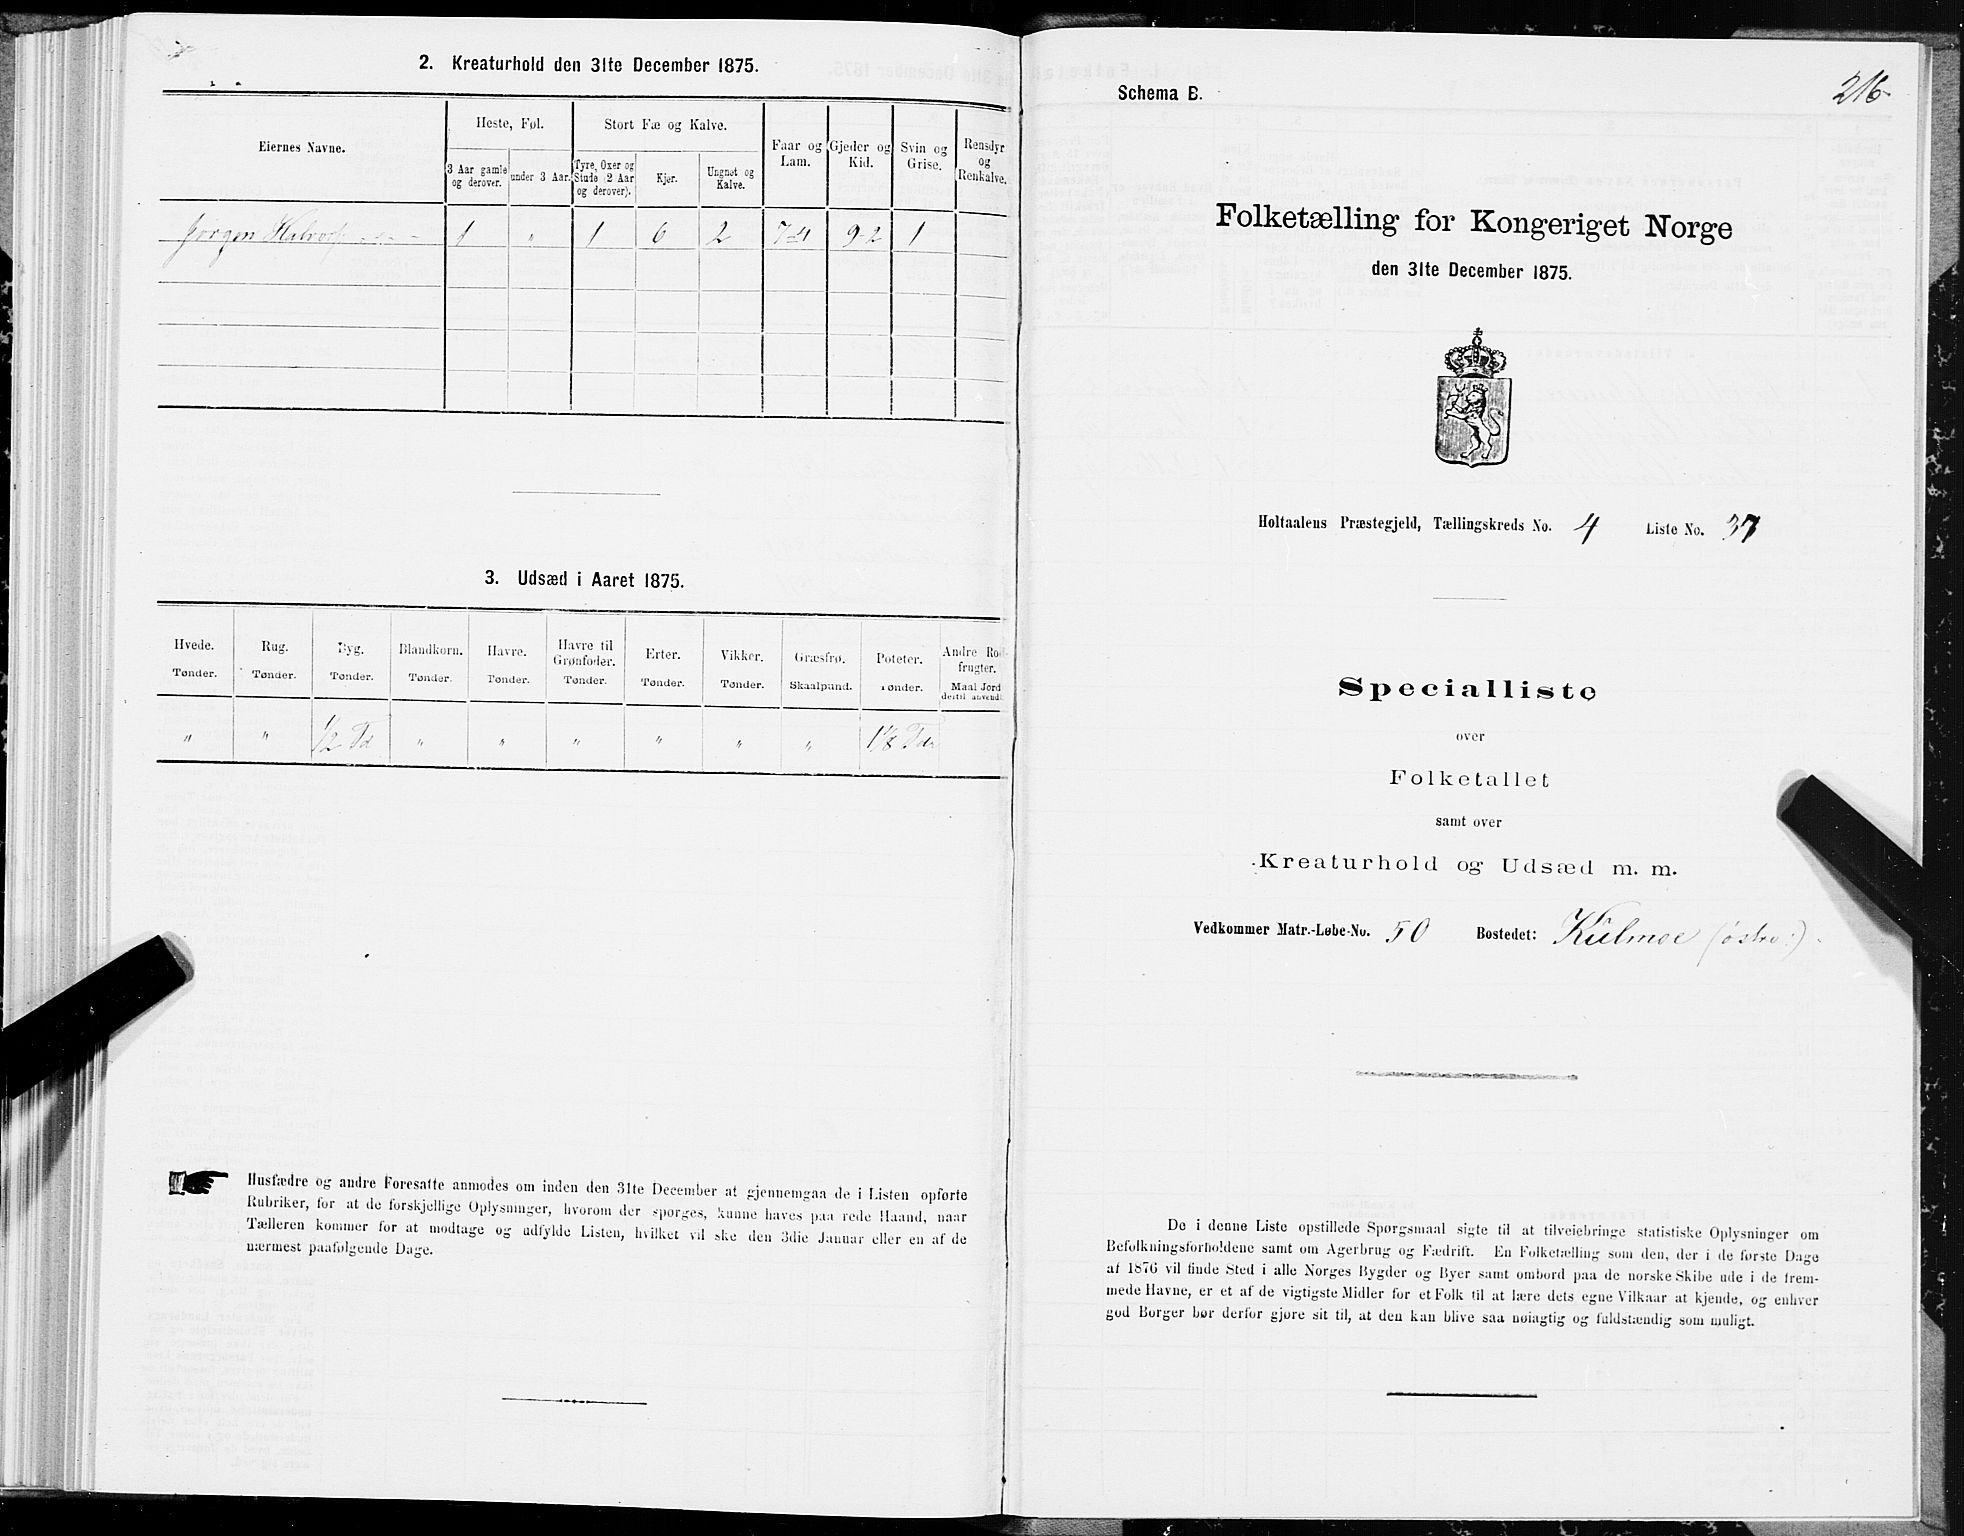 2. Kreaturhold den 31te December 1875.
Eiernes Navne.
Heste, Føl.
3 Aar gamle og derover.
under 3 Aar.
Stort Fæ og Kalve.
Tyre, Oxer og Stude (2 Aar og derover).
Kjør.
Ungnøt og Kalve.
Faar og Lam.
Gjeder og Kid.
Svin og Grise.
Rensdyr og Renkalve.
Jørgen Halvors 1 " 1 6 2 7-4 9-2 1
3. Udsæd i Aaret 1875.
Hvede. Tønder.
Rug. Tønder.
Byg. Tønder.
Blandkorn. Tønder.
Havre. Tønder.
Havre til Grønfoder. Tønder.
Erter. Tønder.
Vikker. Tønder.
Græsfrø. Skaalpund.
Poteter. Tønder.
Andre Rodfrugter. Maal Jord dertil anvendt.
" " 1/2 Td " " " " " " 1 1/8 Tdr
Husfædre og andre Foresatte anmodes om inden den 31te December at gjennemgaa de i Listen opførte
Rubriker, for at de forskjellige Oplysninger, hvorom der spørges, kunne haves paa rede Haand, naar
Tælleren kommer for at modtage og udfylde Listen, hvilket vil ske den 3die Januar eller en af de
nærmest paafølgende Dage.
216
Schema B.
Folketælling for Kongeriget Norge
den 31te December 1875.
Holtaalens Præstegjeld, Tællingskreds No. 4 Liste No. 37
Specialliste
over
Folketallet
samt over
Kreaturhold og Udsæd m. m.
Vedkommer Matr.-Løbe-No. 50 Bostedet: Külmoe (østre)
De i denne Liste opstillede Spørgsmaal sigte til at tilveiebringe statistiske Oplysninger om
Befolkningsforholdene samt om Agerbrug og Fædrift. En Folketælling som den, der i de første Dage
af 1876 vil finde Sted i alle Norges Bygder og Byer samt ombord paa de norske Skibe ude i de frem-
mede Havne, er et af de vigtigste Midler for et Folk til at lære dets egne Vilkaar at kjende, og enhver
god Borger bør derfor gjøre sit til, at den kan blive saa nøiagtig og fuldstændig som muligt.